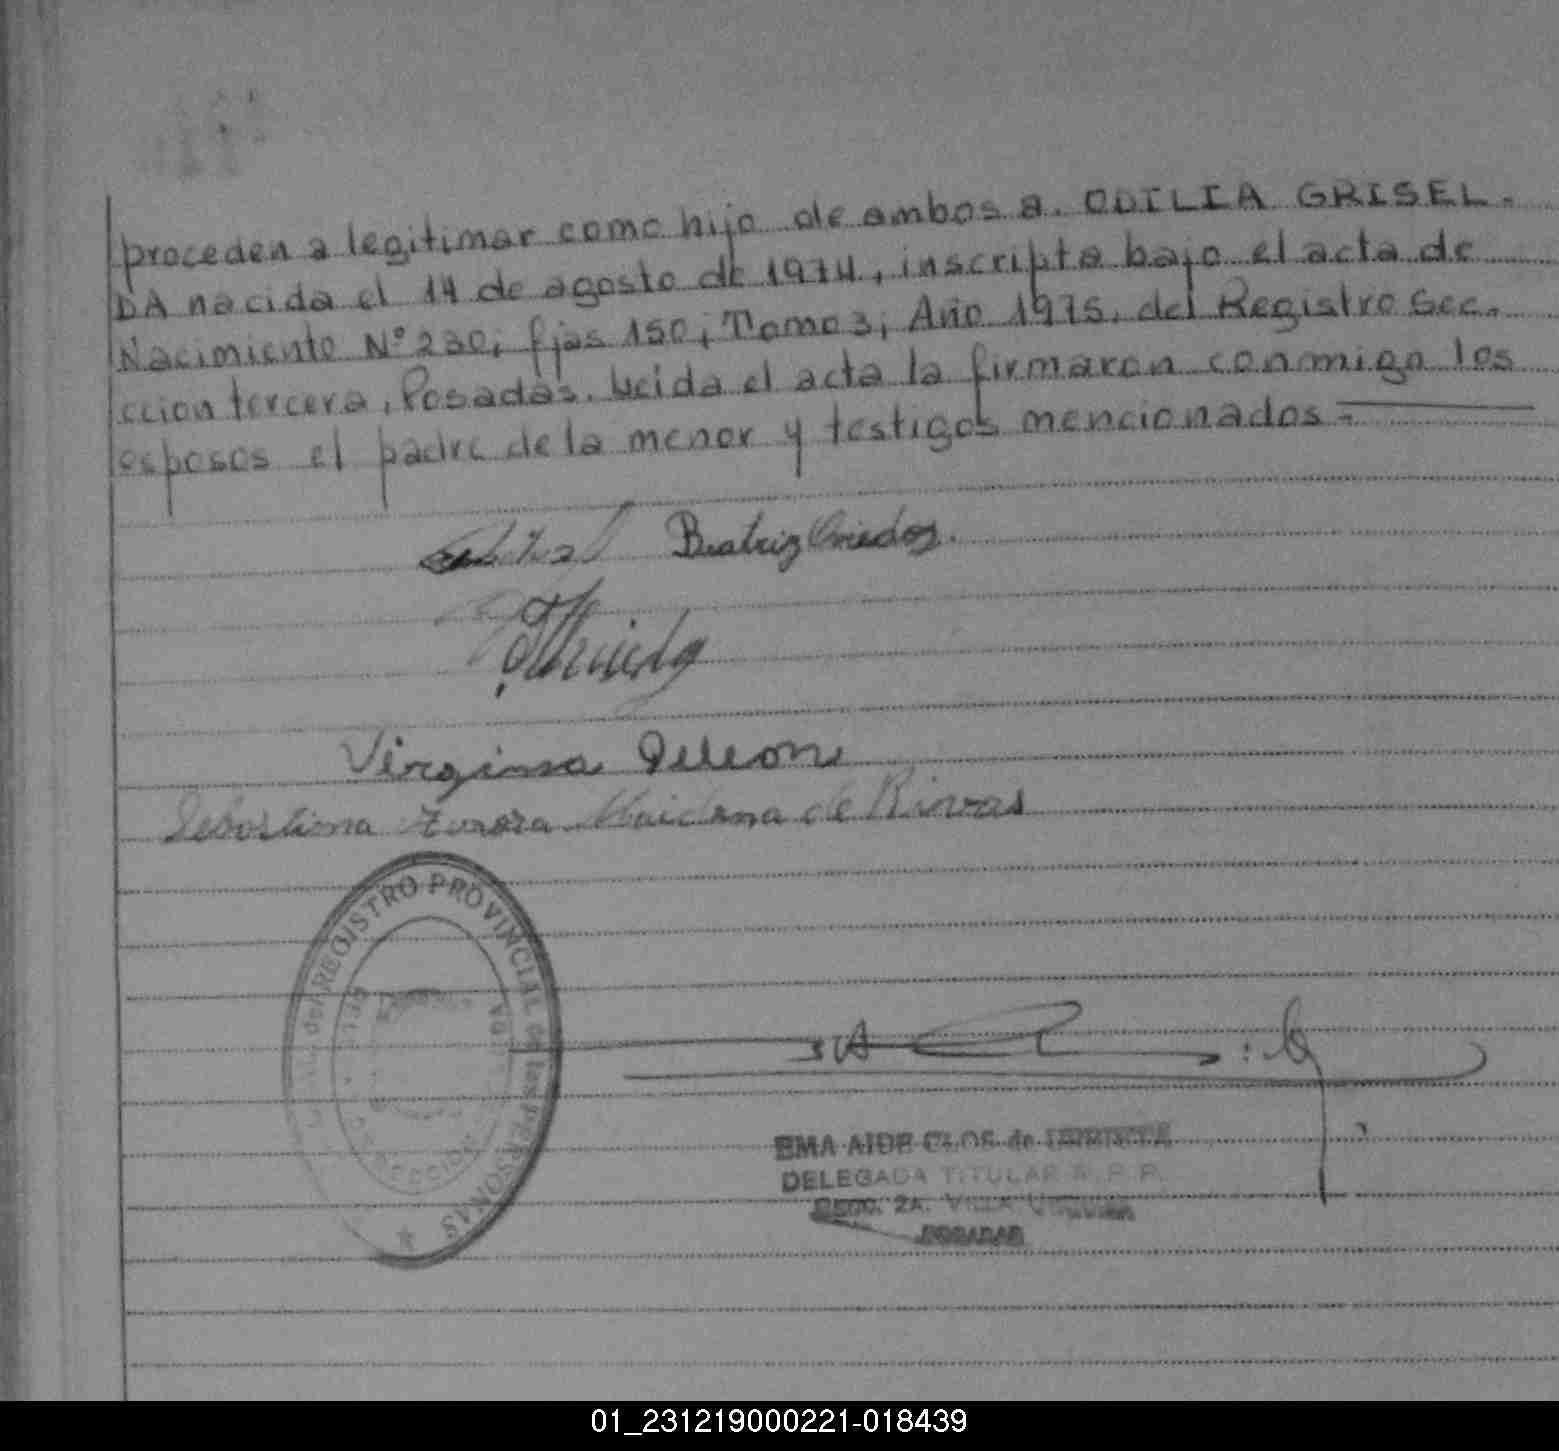 proceden a legitimar como hijo de ambos a. ODILIA GRISEL-
DA nacida el 14 de agosto de 1974, inscripta bajo el acta de
Nacimiento Nº 230; fjas 150; Tomo 3; Año 1975, del Registro Sec-
ccion tercera, Posadas. Leida el acta la firmaron conmigo los
esposos el padre de la menor y testigos mencionados -
Beatriz Oviedo
Virginia Deleon
Aurora Maidana de Rivas
REGISTRO PROVINCIAL de las PERSONAS
EMA AIDE CLOS de
DELEGADA TITULAR R. P. P.
SECC. 2A. VILLA URQUIZA
POSADAS
01_231219000221-018439